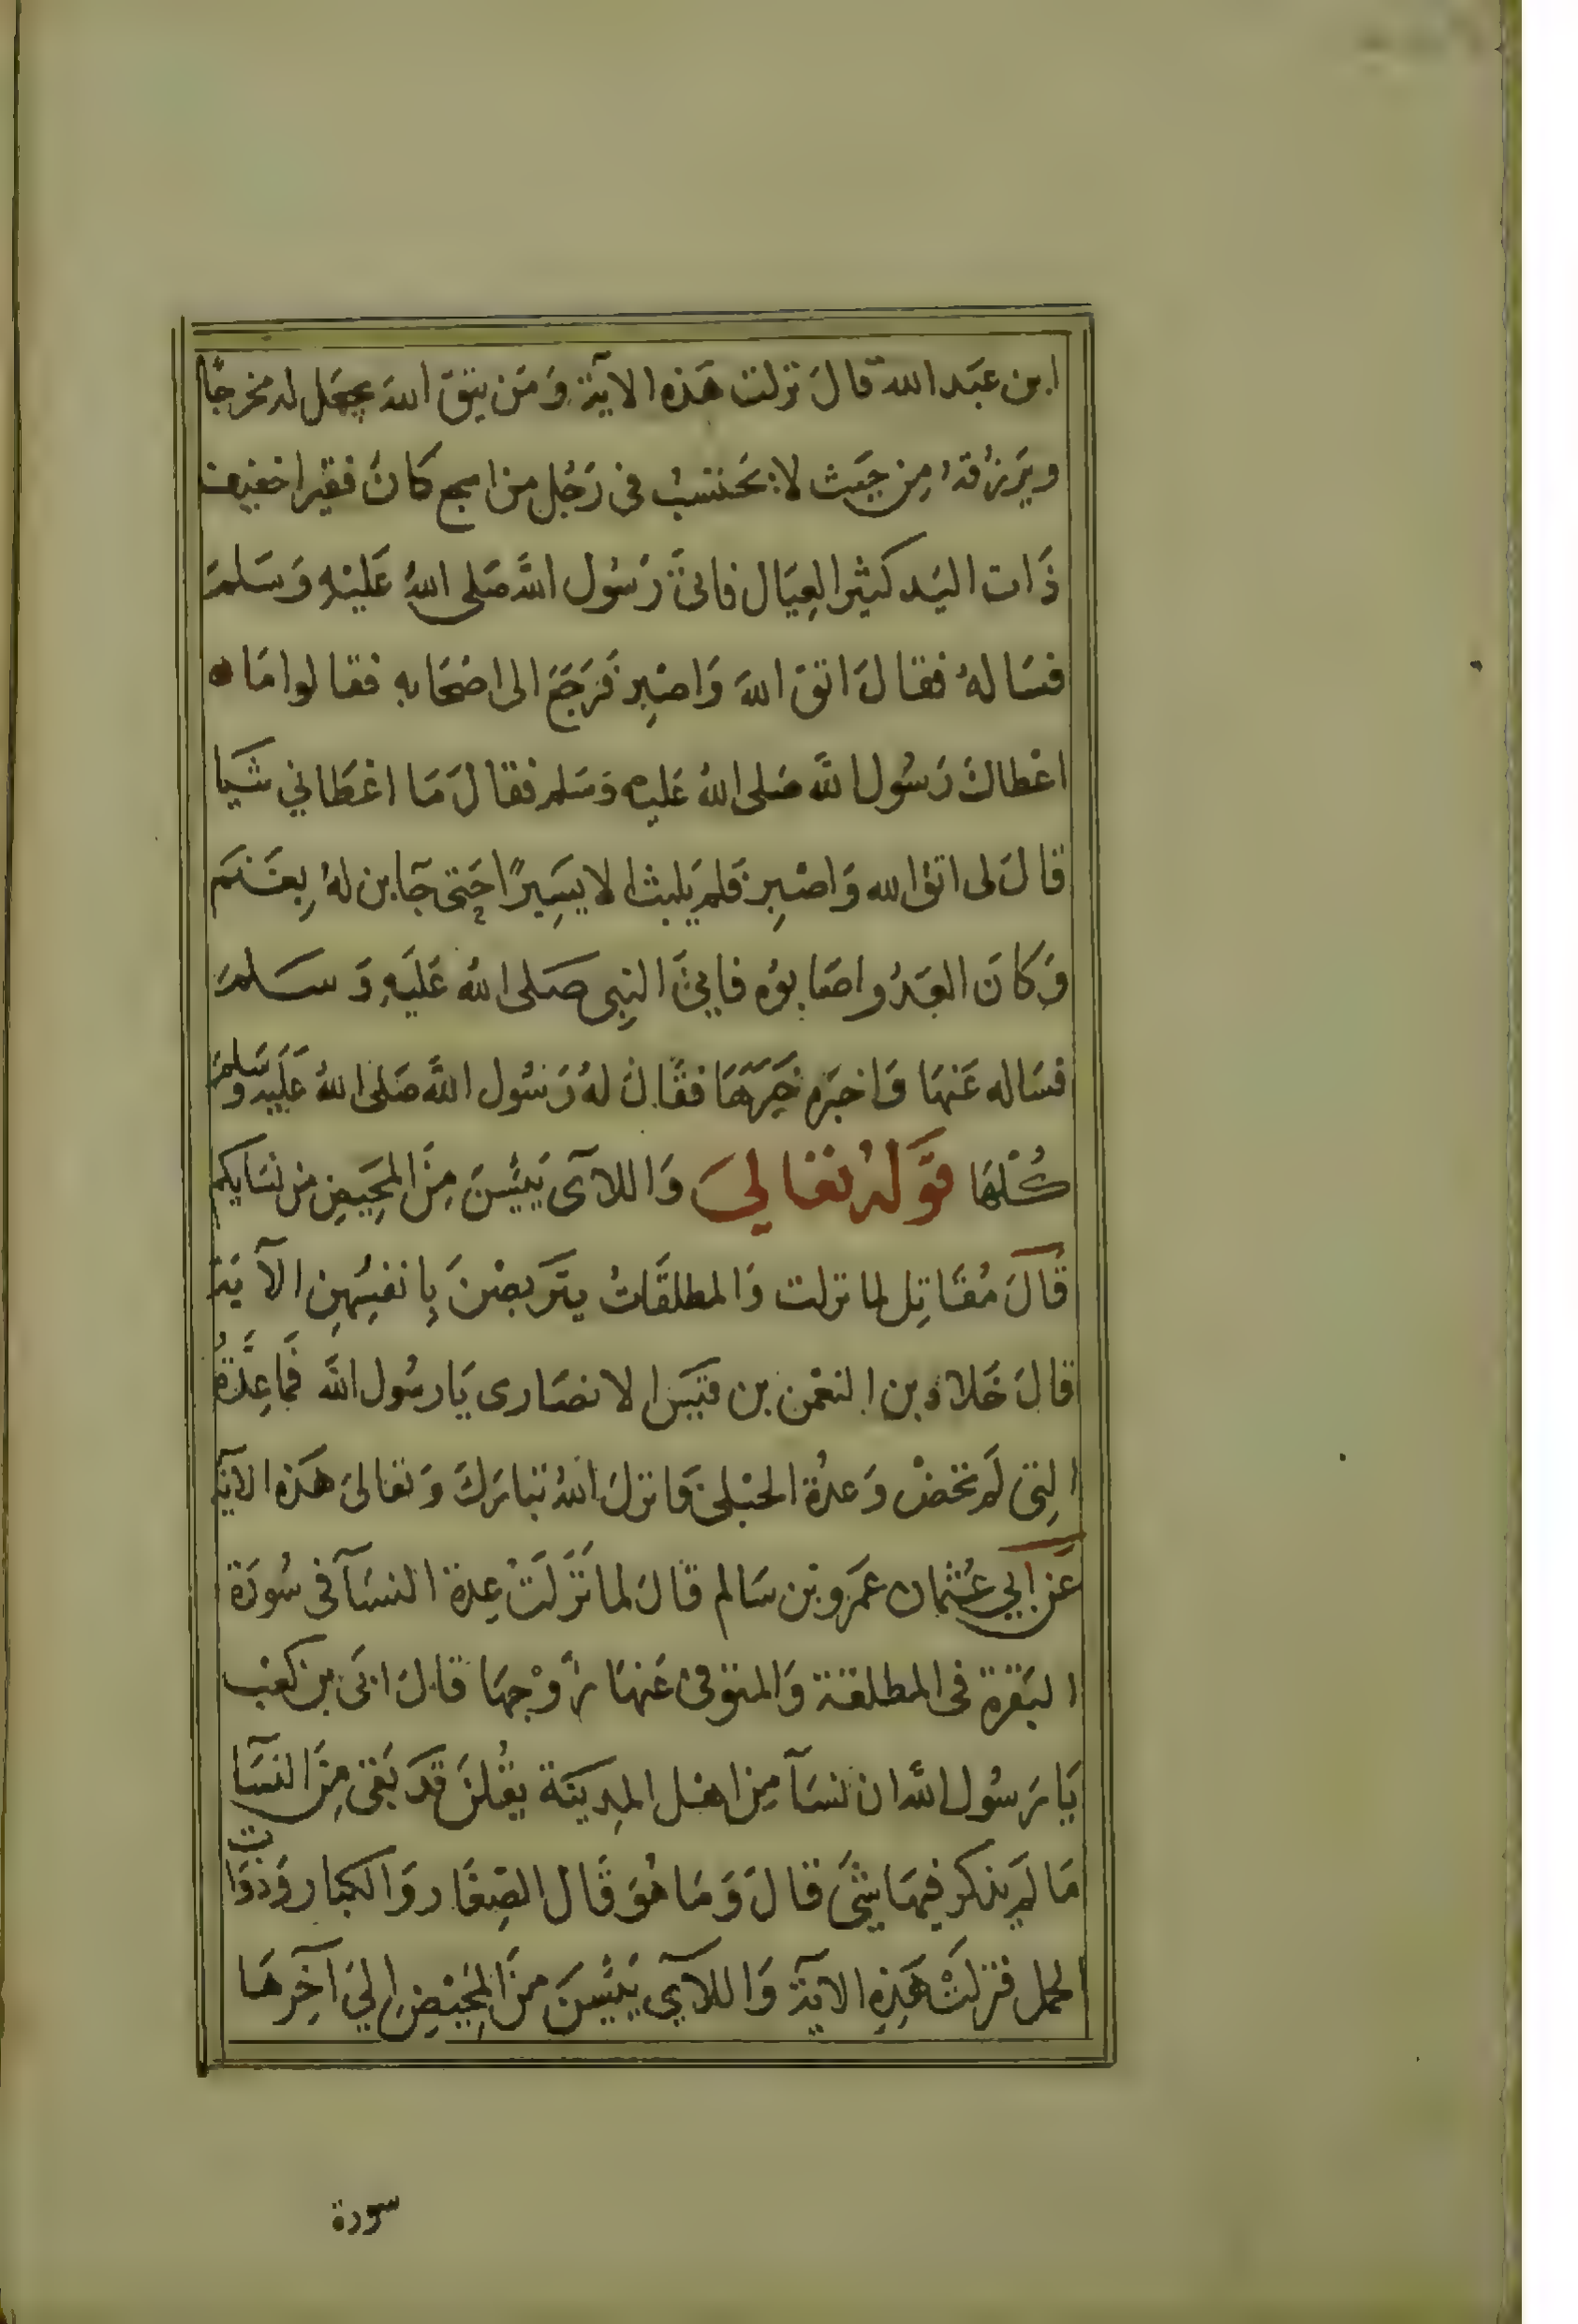 ابن عَبد الله قالَ نزلت هَذه الاية وَمَن يتق اللهَ يجعَل له مخرجًا
ويَرزُقهُ مِن حَيث لا يَحتسبُ فى رَجُل من اشجع كانَ فقيرا خفيف
ذَات اليَد كثير العِيَال فاتىَ رَسُول الله صَلى اللهُ عَليْهِ وَسَلمَ
فسَالهُ فقالَ اتق اللهَ وَاصْبِر فَرَجَعَ الى اصْحَابه فقالوا مَا
اعْطاكَ رَسُول الله صَلى اللهُ عَليه وَسَلم فقالَ مَا اعْطَاني شَيا
قالَ لى اتق الله وَاصْبِر فلم يَلبث الا يَسِيرًا حَتى جَآ ابن لهُ بِغَنَم
وَكانَ العَدُو اصَابوُه فاتىَ النبِى صَلى اللهُ عَليَهِ وَسَلمَ
فسَاله عَنهَا وَاخبَره خَبَرَهَا فقالَ لهُ رَسُول الله صَلى اللهُ عَليه وسَلمَ
كُلهَا قوَلهُ تعَالىَ وَاللآى يَئِسْنَ مِنَ المحَيضِ من نسَايكم
قَالَ مُقَاتِل لما نزلت وَالمطلقَاتُ يتَرَبصْنَ بِانفسِهِن الآيَة
قالَ خَلاد بن النعْمن بن قيَس الانصَارى يَا رسُول الله فَمَا عِدَّةُ
التِى لَم تحَضْ وَعدُة الحبْلىَ فَانزلَ اللهُ تبَارَكَ وَتعَالىَ هَذه الايَة
عَن ابي عُثمان عَمَرو بْن سَالم قالَ لما نَزَلَتْ عِدة النسَآ فى سُورَة
البَقرَة فى المطلقة وَالمتوَفىَ عَنهَا زَوْجهَا قالَ ابَى بن كعْب
يَا رَسُول الله ان نسَآ مِن اهْل المدِينَة يقُلنَ قَد بَقى مِنَ النسَآ
مَا لَم يذكر فِيهَا شَى قالَ وَمَا هُوَ قَال الصِغَار وَالكبَار وَذوَات
الحمل فنزلتْ هَذِهِ الايَة وَاللآي يَئِسْنَ مِنَ المحَيْضِ الي آخِرهَا
سورة